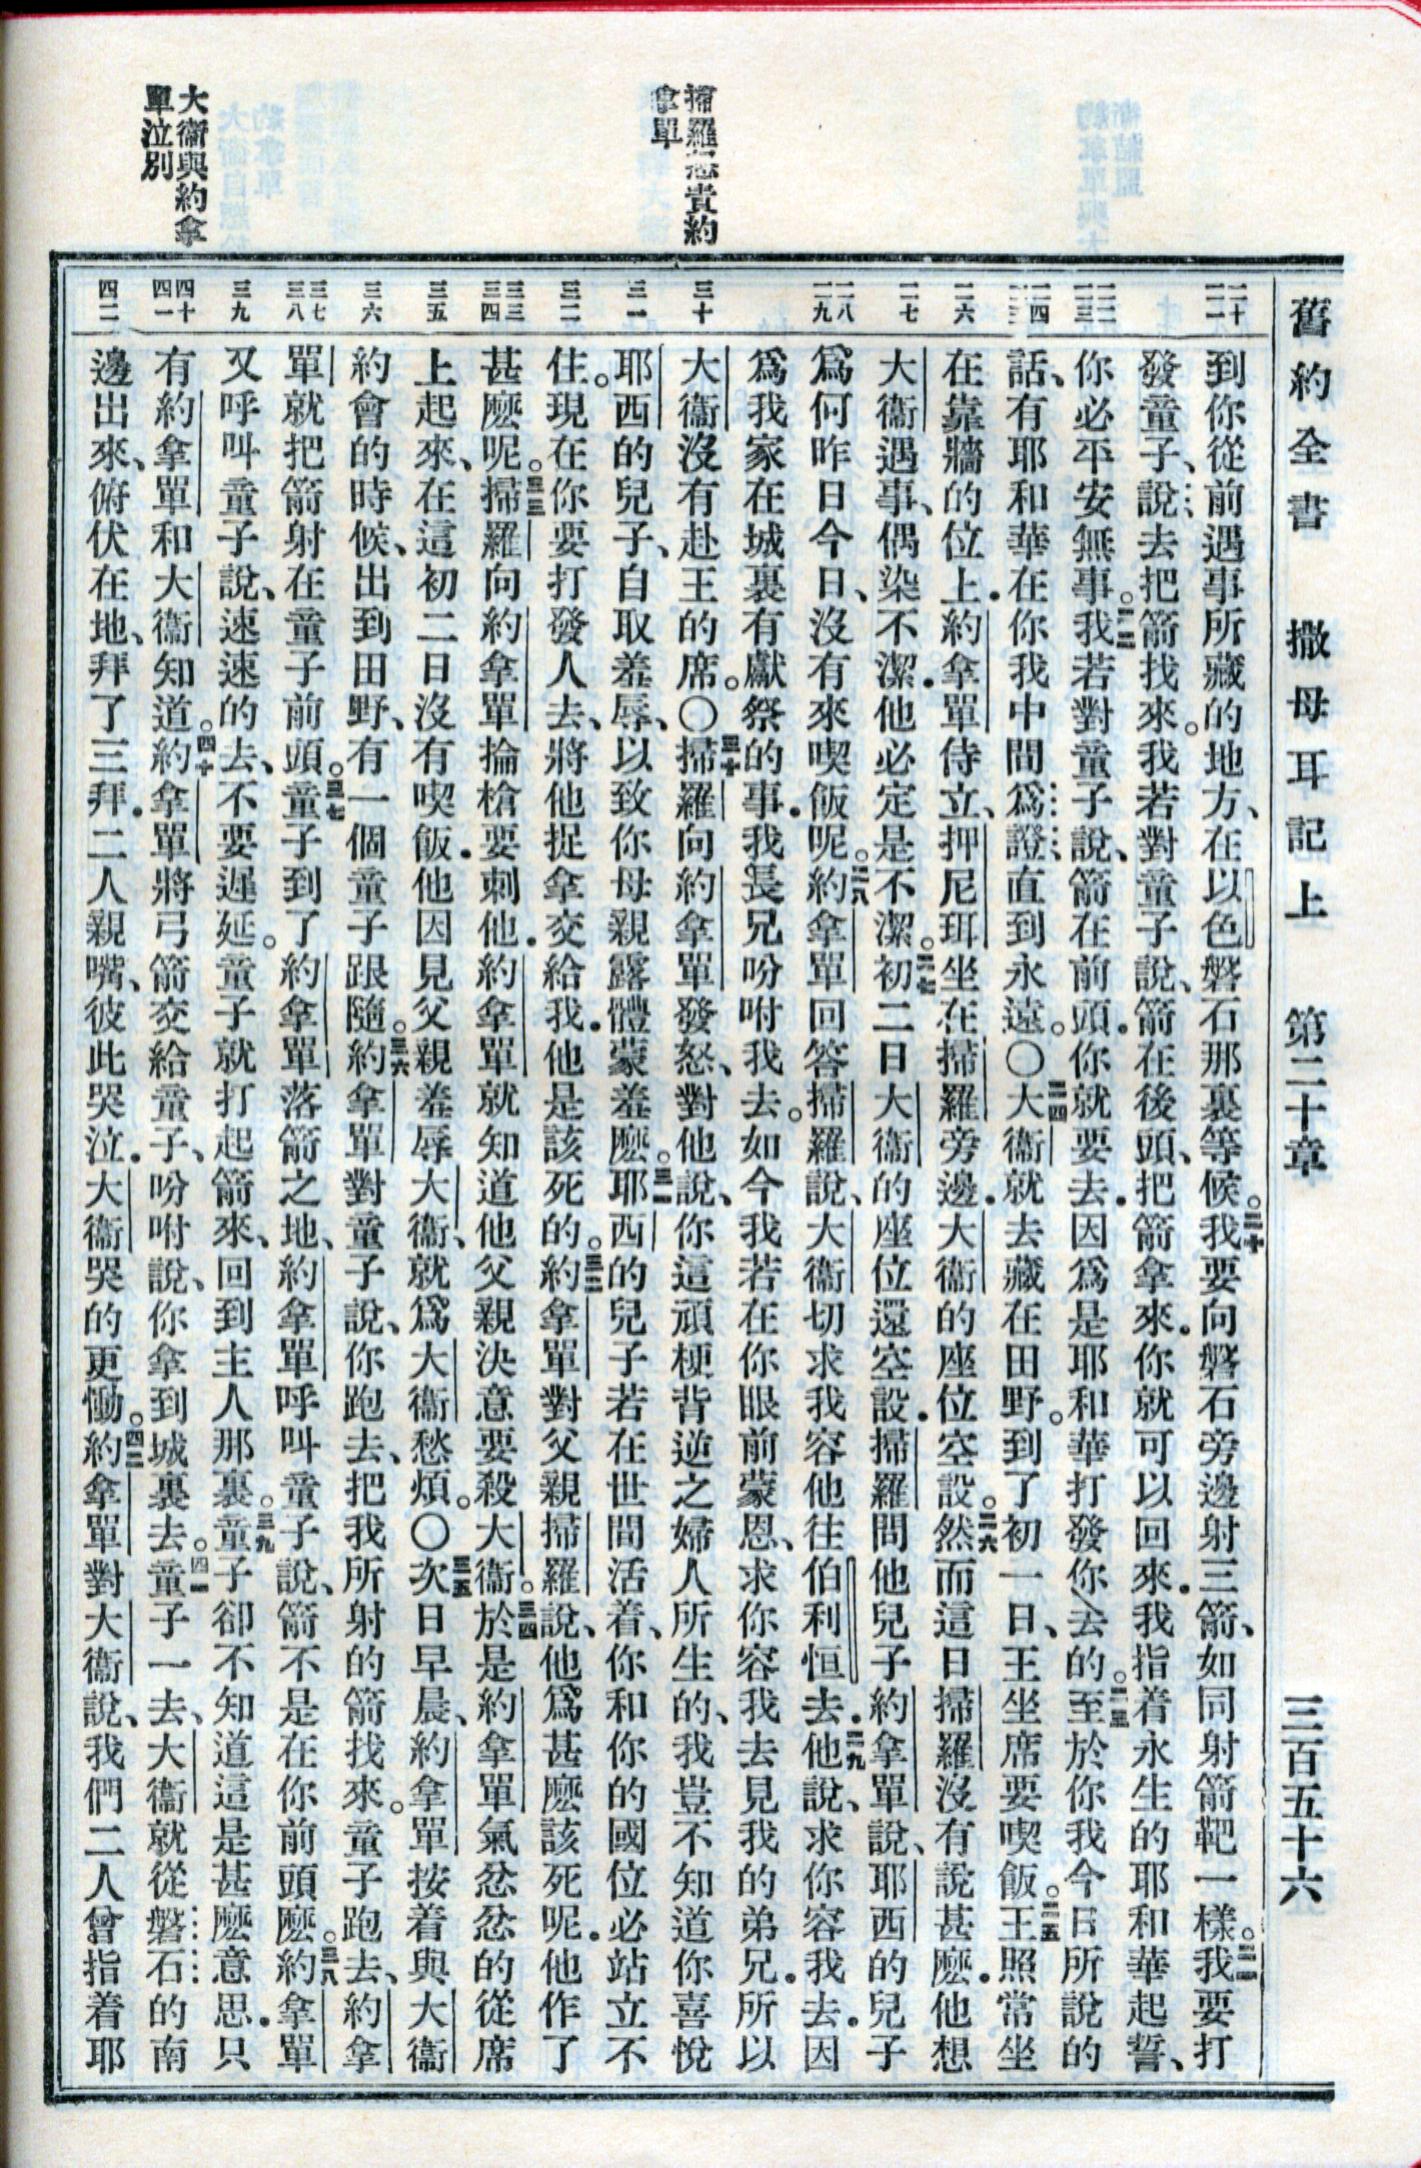 舊約全書 撒母耳記上 第二十章 三百五十六
掃羅怒責約
拿單
大衞與約拿
單泣別
二十
二一
二二
二三
二四
二六
二七
二八
二九
三十
三一
三二
三三
三四
三五
三六
三七
三八
三九
四十
四一
四二
到你從前遇事所藏的地方、在以色磐石那裏等候。二十我要向磐石旁邊射三箭、如同射箭靶一樣。二一我要打
發童子、說去把箭找來。我若對童子說、箭在後頭、把箭拿來．你就可以回來．我指着永生的耶和華起誓、
你必平安無事。二二我若對童子說、箭在前頭．你就要去．因爲是耶和華打發你去的。二三至於你我今日所說的
話、有耶和華在你我中間爲證、直到永遠。〇二四大衞就去藏在田野。到了初一日、王坐席要喫飯。二五王照常坐
在靠牆的位上．約拿單侍立、押尼珥坐在掃羅旁邊．大衞的座位空設。二六然而這日掃羅沒有說甚麽．他想
大衞遇事、偶染不潔．他必定是不潔。二七初二日大衞的座位還空設．掃羅問他兒子約拿單說、耶西的兒子
爲何昨日今日、沒有來喫飯呢。二八約拿單回答掃羅說、大衞切求我容他往伯利恒去．二九他說、求你容我去．因
爲我家在城裏有獻祭的事．我長兄吩咐我去。如今我若在你眼前蒙恩、求你容我去見我的弟兄．所以
大衞沒有赴王的席。〇三十掃羅向約拿單發怒、對他說、你這頑梗背逆之婦人所生的、我豈不知道你喜悅
耶西的兒子、自取羞辱、以致你母親露體蒙羞麽。三一耶西的兒子若在世間活着、你和你的國位必站立不
住。現在你要打發人去、將他捉拿交給我．他是該死的。三二約拿單對父親掃羅說、他爲甚麽該死呢．他作了
甚麽呢。三三掃羅向約拿單掄槍要刺他．約拿單就知道他父親決意要殺大衞。三四於是約拿單氣忿忿的從席
上起來、在這初二日沒有喫飯．他因見父親羞辱大衞、就爲大衞愁煩。〇三五次日早晨、約拿單按着與大衞
約會的時候、出到田野、有一個童子跟隨。三六約拿單對童子說、你跑去、把我所射的箭找來。童子跑去、約拿
單就把箭射在童子前頭。三七童子到了約拿單落箭之地、約拿單呼叫童子說、箭不是在你前頭麽。三八約拿單
又呼叫童子說、速速的去、不要遲延。童子就打起箭來、回到主人那裏。三九童子卻不知道這是甚麽意思．只
有約拿單和大衞知道。四十約拿單將弓箭交給童子、吩咐說、你拿到城裏去。四一童子一去、大衞就從磐石的南
邊出來、俯伏在地、拜了三拜．二人親嘴、彼此哭泣．大衞哭的更慟。四二約拿單對大衞說、我們二人曾指着耶